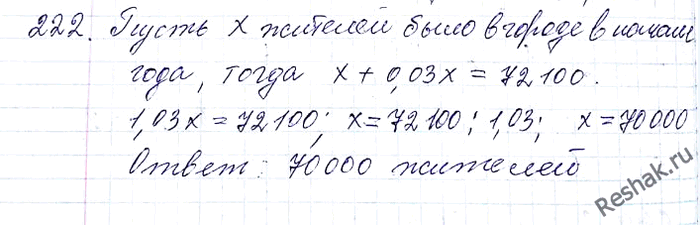 222. Пусть x жителей было в городе в начале
года, тогда x + 0,03x = 72 100.
1,03x = 72100; x = 72100 : 1,03; x = 70000
Ответ: 70000 жителей
Reshak.ru